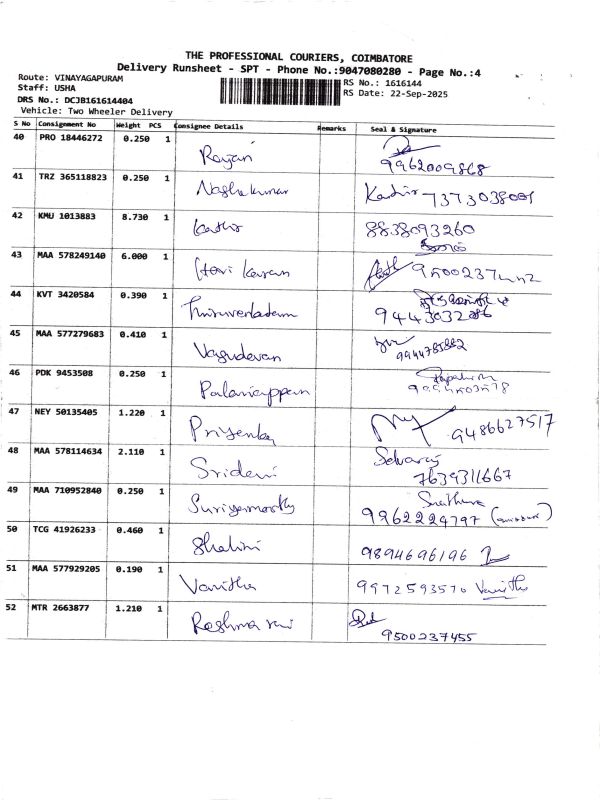 THE PROFESSIONAL COURIERS, COIMBATORE
Delivery Runsheet - SPT - Phone No.:9047080280 - Page No.:4
Route: VINAYAGAPURAM
Staff: USHA
DRS No.: DCJB161614404
Vehicle: Two Wheeler Delivery
RS No.: 1616144
RS Date: 22-Sep-2025
S No Consignment No Weight PCS Consignee Details Remarks Seal & Signature
40 PRO 18446272 0.250 1 Rajan 9962009868
41 TRZ 365118823 0.250 1 Kathir
42 KMU 1013883 8.730 1 Kathir 8838093260
43 MAA 578249140 6.000 1 Hari Karan
44 KVT 3420584 0.390 1
45 MAA 577279683 0.410 1 Vasudevan
46 PDK 9453508 0.250 1 Palaniappan
47 NEY 50135405 1.220 1 Priyenka 9486627517
48 MAA 578114634 2.110 1 Sridevi Selvaraj
7639311667
49 MAA 710952840 0.250 1 Suriyamoorthy
9962224797
50 TCG 41926233 0.460 1 Shalini 9894696196
51 MAA 577929205 0.190 1 Vanitha 9972593570 Vanitha
52 MTR 2663877 1.210 1 Reshma
9500237455